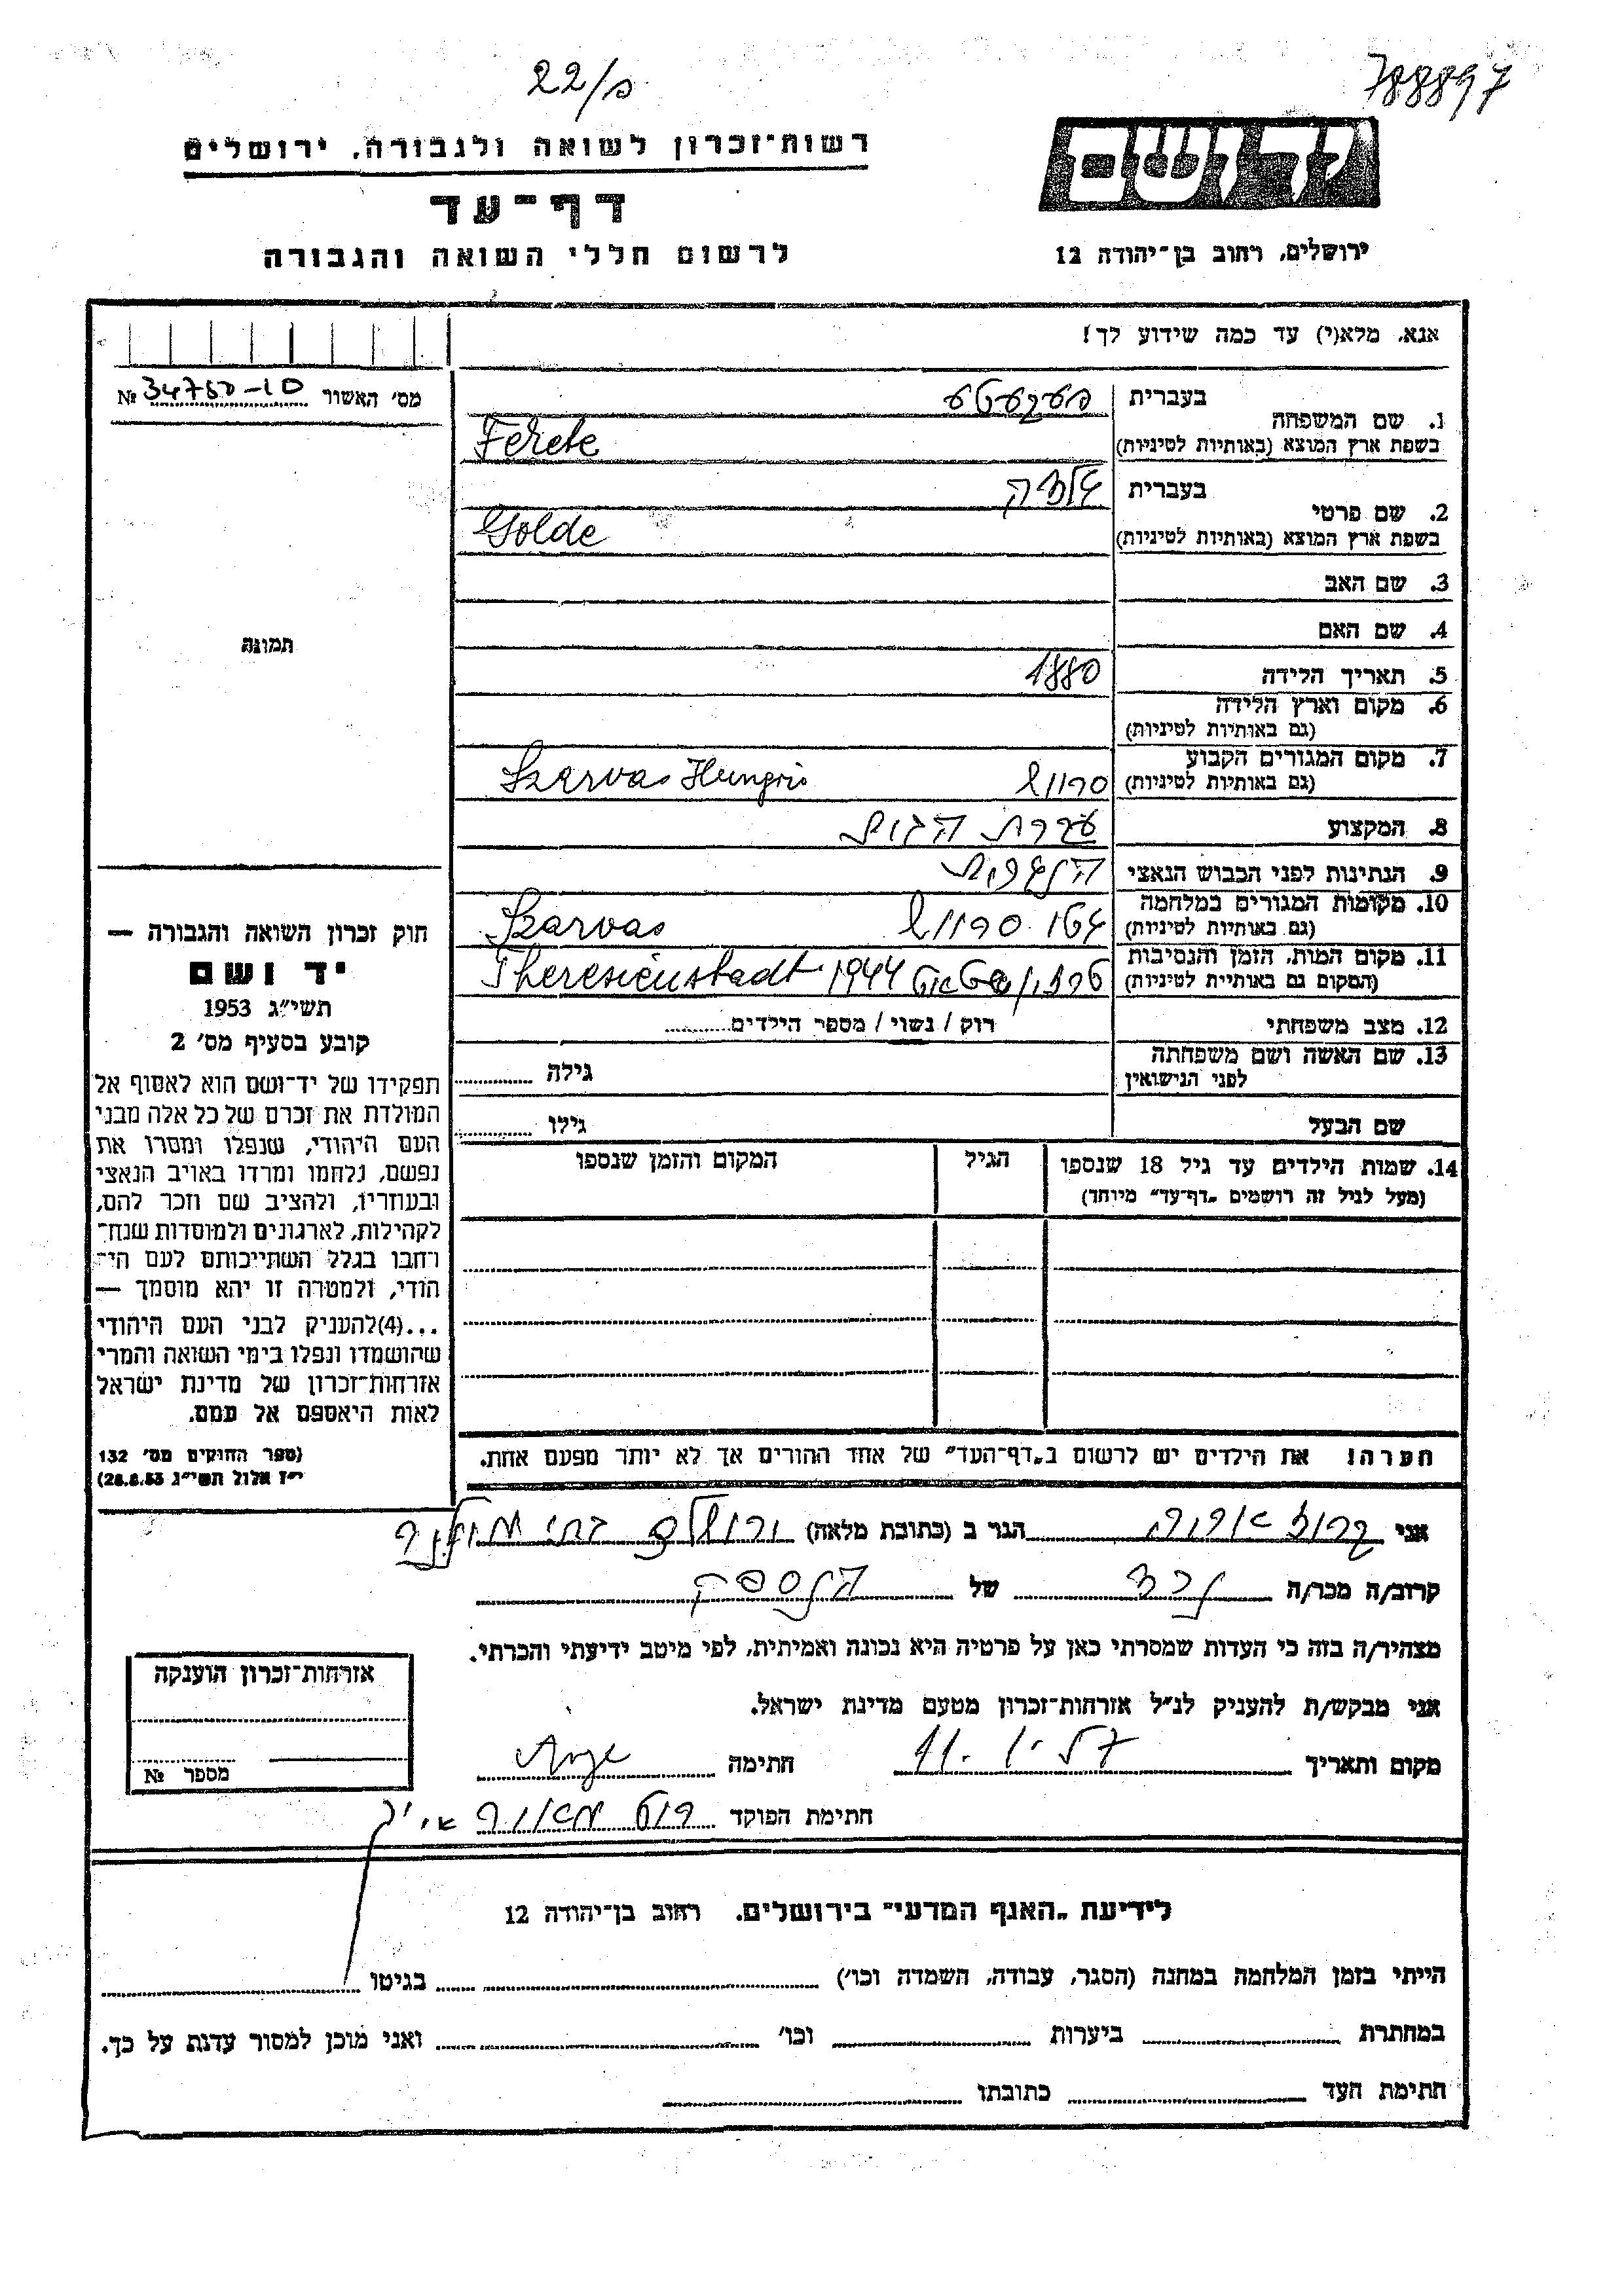 22/פ
788897
רשות־זכרון לשואה ולגבורה, ירושלים
דף־עד
לרשום חללי השואה והגבורה
יד ושם
ירושלים, רחוב בן־יהודה 12
אנא, מלא(י) עד כמה שידוע לך!
מס׳ האשור № 34750-10
בעברית
1. שם המשפחה
בשפת ארץ המוצא (באותיות לטיניות) Ferete
בעברית גולדה
2. שם פרטי
בשפת ארץ המוצא (באותיות לטיניות) Golde
3. שם האב
4. שם האם
תמונה
5. תאריך הלידה 1880
6. מקום וארץ הלידה
(גם באותיות לטיניות)
7. מקום המגורים הקבוע
(גם באותיות לטיניות) Szarvas Hungri
8. המקצוע עקרת הבית
9. הנתינות לפני הכבוש הנאצי הונגרית
10. מקומות המגורים במלחמה
(גם באותיות לטיניות) גטו Szarvas
11. מקום המות, הזמן והנסיבות
(המקום גם באותיית לטיניות) Theresienstadt 1944
12. מצב משפחתי רוק / נשוי / מספר הילדים
13. שם האשה ושם משפחתה
לפני הנישואין גילה
שם הבעל גילו
14. שמות הילדים עד גיל 18 שנספו הגיל המקום והזמן שנספו
(מעל לגיל זה רושמים „דף־עד״ מיוחד)
חוק זכרון השואה והגבורה —
יד ושם
תשי״ג 1953
קובע בסעיף מס׳ 2
תפקידו של יד־ושם הוא לאסוף אל
המולדת את זכרם של כל אלה מבני
העם היהודי, שנפלו ומסרו את
נפשם, נלחמו ומרדו באויב הנאצי
ובעוזריו, ולהציב שם וזכר להם,
לקהילות, לארגונים ולמוסדות שנח־
רחבו בגלל השתייכותם לעם הי־
הודי, ולמטרה זו יהא מוסמך —
...(4)להעניק לבני העם היהודי
שהושמדו ונפלו בימי השואה והמרי
אזרחות־זכרון של מדינת ישראל
לאות היאספם אל עמם.
(ספר החוקים מס׳ 132
י״ז אלול תשי״ג 28.8.53)
הערה! את הילדים יש לרשום ב„דף־העד״ של אחד ההורים אך לא יותר מפעם אחת.
אני הגר ב (כתובת מלאה) ירושלים
קרוב/ה מכר/ה נכד של הנספה
מצהיר/ה בזה כי העדות שמסרתי כאן על פרטיה היא נכונה ואמיתית, לפי מיטב ידיעתי והכרתי.
אני מבקש/ת להעניק לנ״ל אזרחות־זכרון מטעם מדינת ישראל.
מקום ותאריך חתימה
חתימת הפוקד
אזרחות־זכרון הוענקה
מספר №
לידיעת „האגף המדעי״ בירושלים. רחוב בן־יהודה 12
הייתי בזמן המלחמה במחנה (הסגר, עבודה, השמדה וכו׳) בגיטו
במחתרת ביערות וכו׳ ואני מוכן למסור עדות על כך.
חתימת העד כתובתו